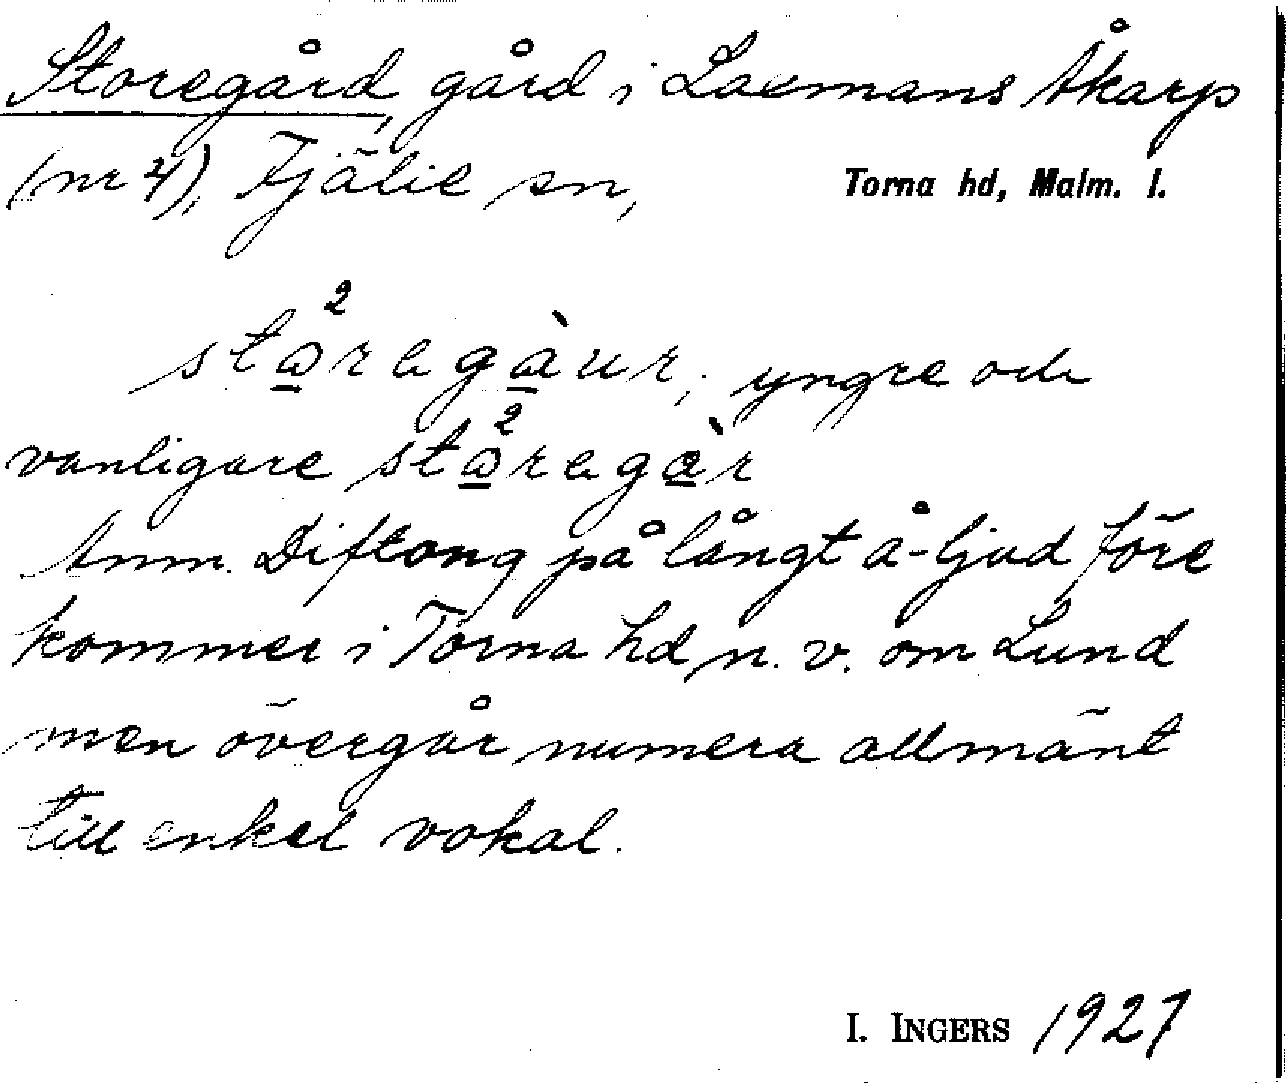 Storegård, gård i Laemans Åkarp
(nr 4), Fjälie sn, Torna hd, Malm. l.
stω̲²regàur, yngre och
vanligare stω̲²regàr
Anm. Diftong på långt å-ljud före
kommer i Torna hd, n. v. om Lund
men övergår numera allmänt
till enkel vokal.
I. INGERS 1927